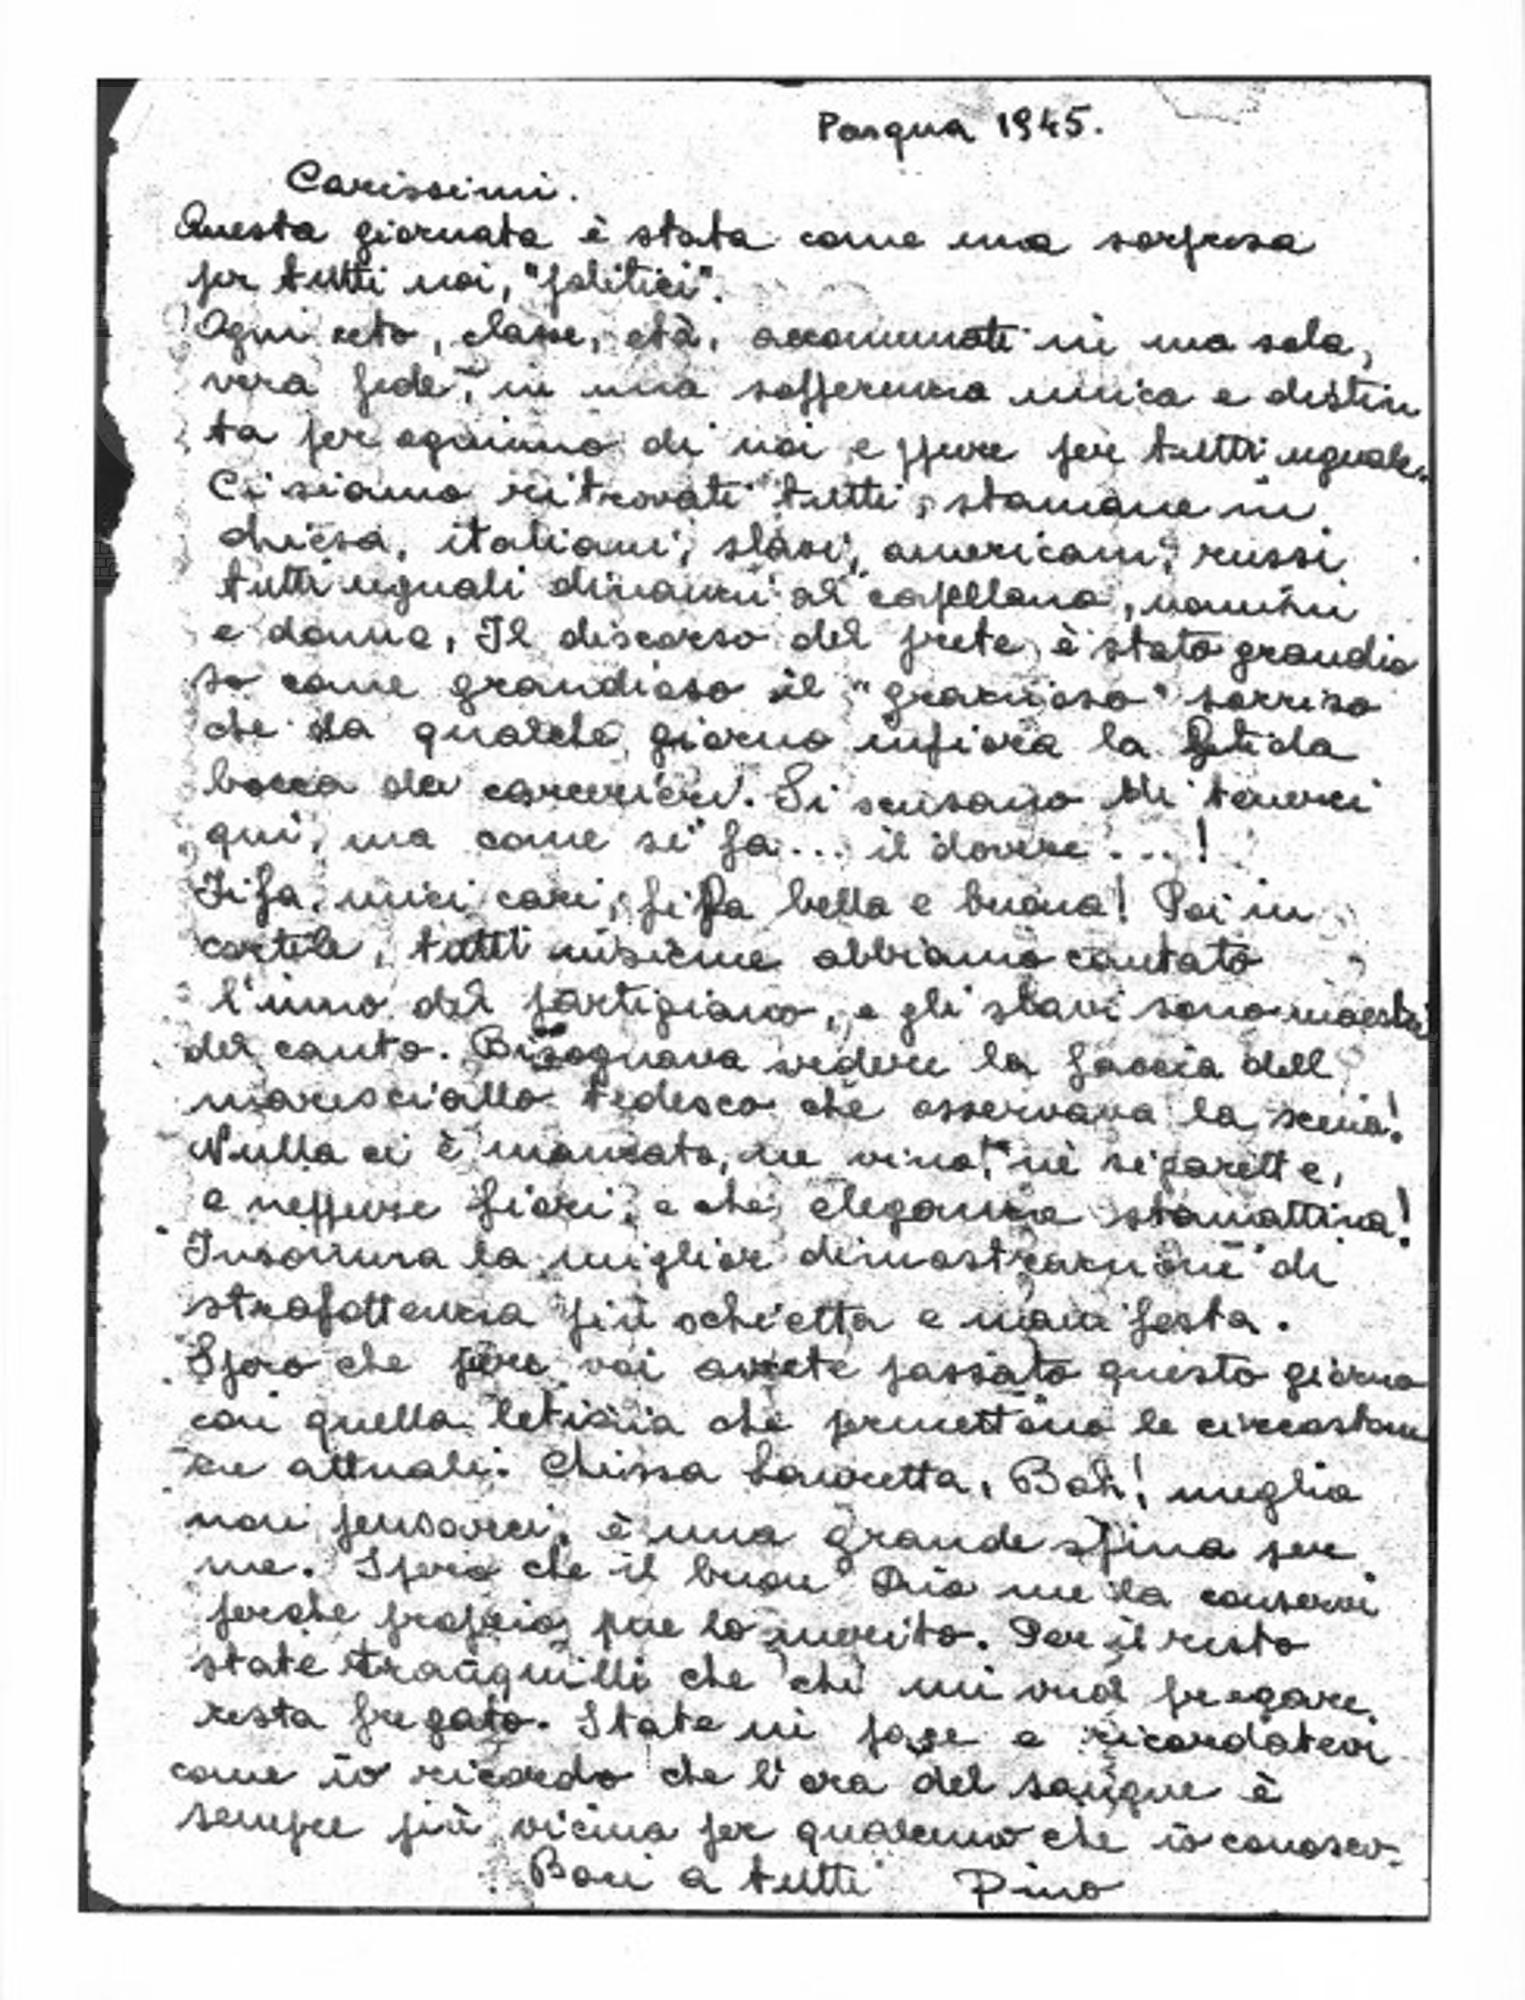 Pasqua 1945.
Carissimi.
Questa giornata è stata come una sorpresa
per tutti noi, "politici".
Ogni ceto, classe, età, accomunati in una sola,
vera fede, in una sofferenza unica e distin
ta per ognuno di noi e ppure per tutti uguale.
Ci siamo ritrovati tutti, stamane in
chiesa, italiani, slavi, americani, russi
tutti uguali dinanzi al capellano, uomini
e donne. Il discorso del prete è stato grandio
so come grandioso il "grazioso" sorriso
che da qualche giorno infiora la fetida
bocca dei carcerieri. Si scusano di tenerci
qui, ma come si fa... il dovere...!
Fifa, miei cari, fifa bella e buona! Poi in
cortile, tutti insieme abbiamo cantato
l'inno del partigiano, e gli slavi sono maestri
del canto. Bisognava vedere la faccia dell
maresciallo tedesco che osservava la scena!
Nulla ci è mancato, ne vino, nè sigarette,
e neppure fiori, e che eleganza stamattina!
Insomma la miglior dimostrazione di
strafottenza più schietta e manifesta.
Spero che pure voi avrete passato questo giorno
con quella letizia che permettono le circostan
ze attuali. Chissa Lauretta, Boh! meglio
non pensarci, è una grande spina per
me. Spero che il buon Dio me la conservi
perche proprio me lo merito. Per il resto
state tranquilli che chi mi vuol fregare
resta fregato. State in pace e ricordatevi
come io ricordo che l'ora del sangue è
sempre più vicina per qualcuno che io conosco.
Baci a tutti Pino